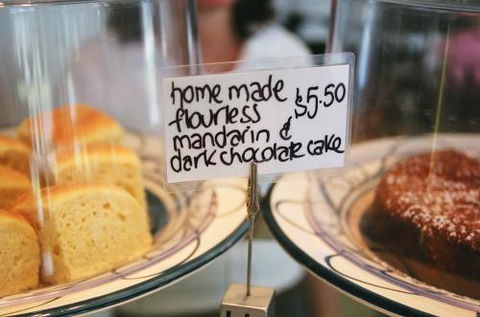 home made $5.50
flourless
mandarin &
dark chocolate cake